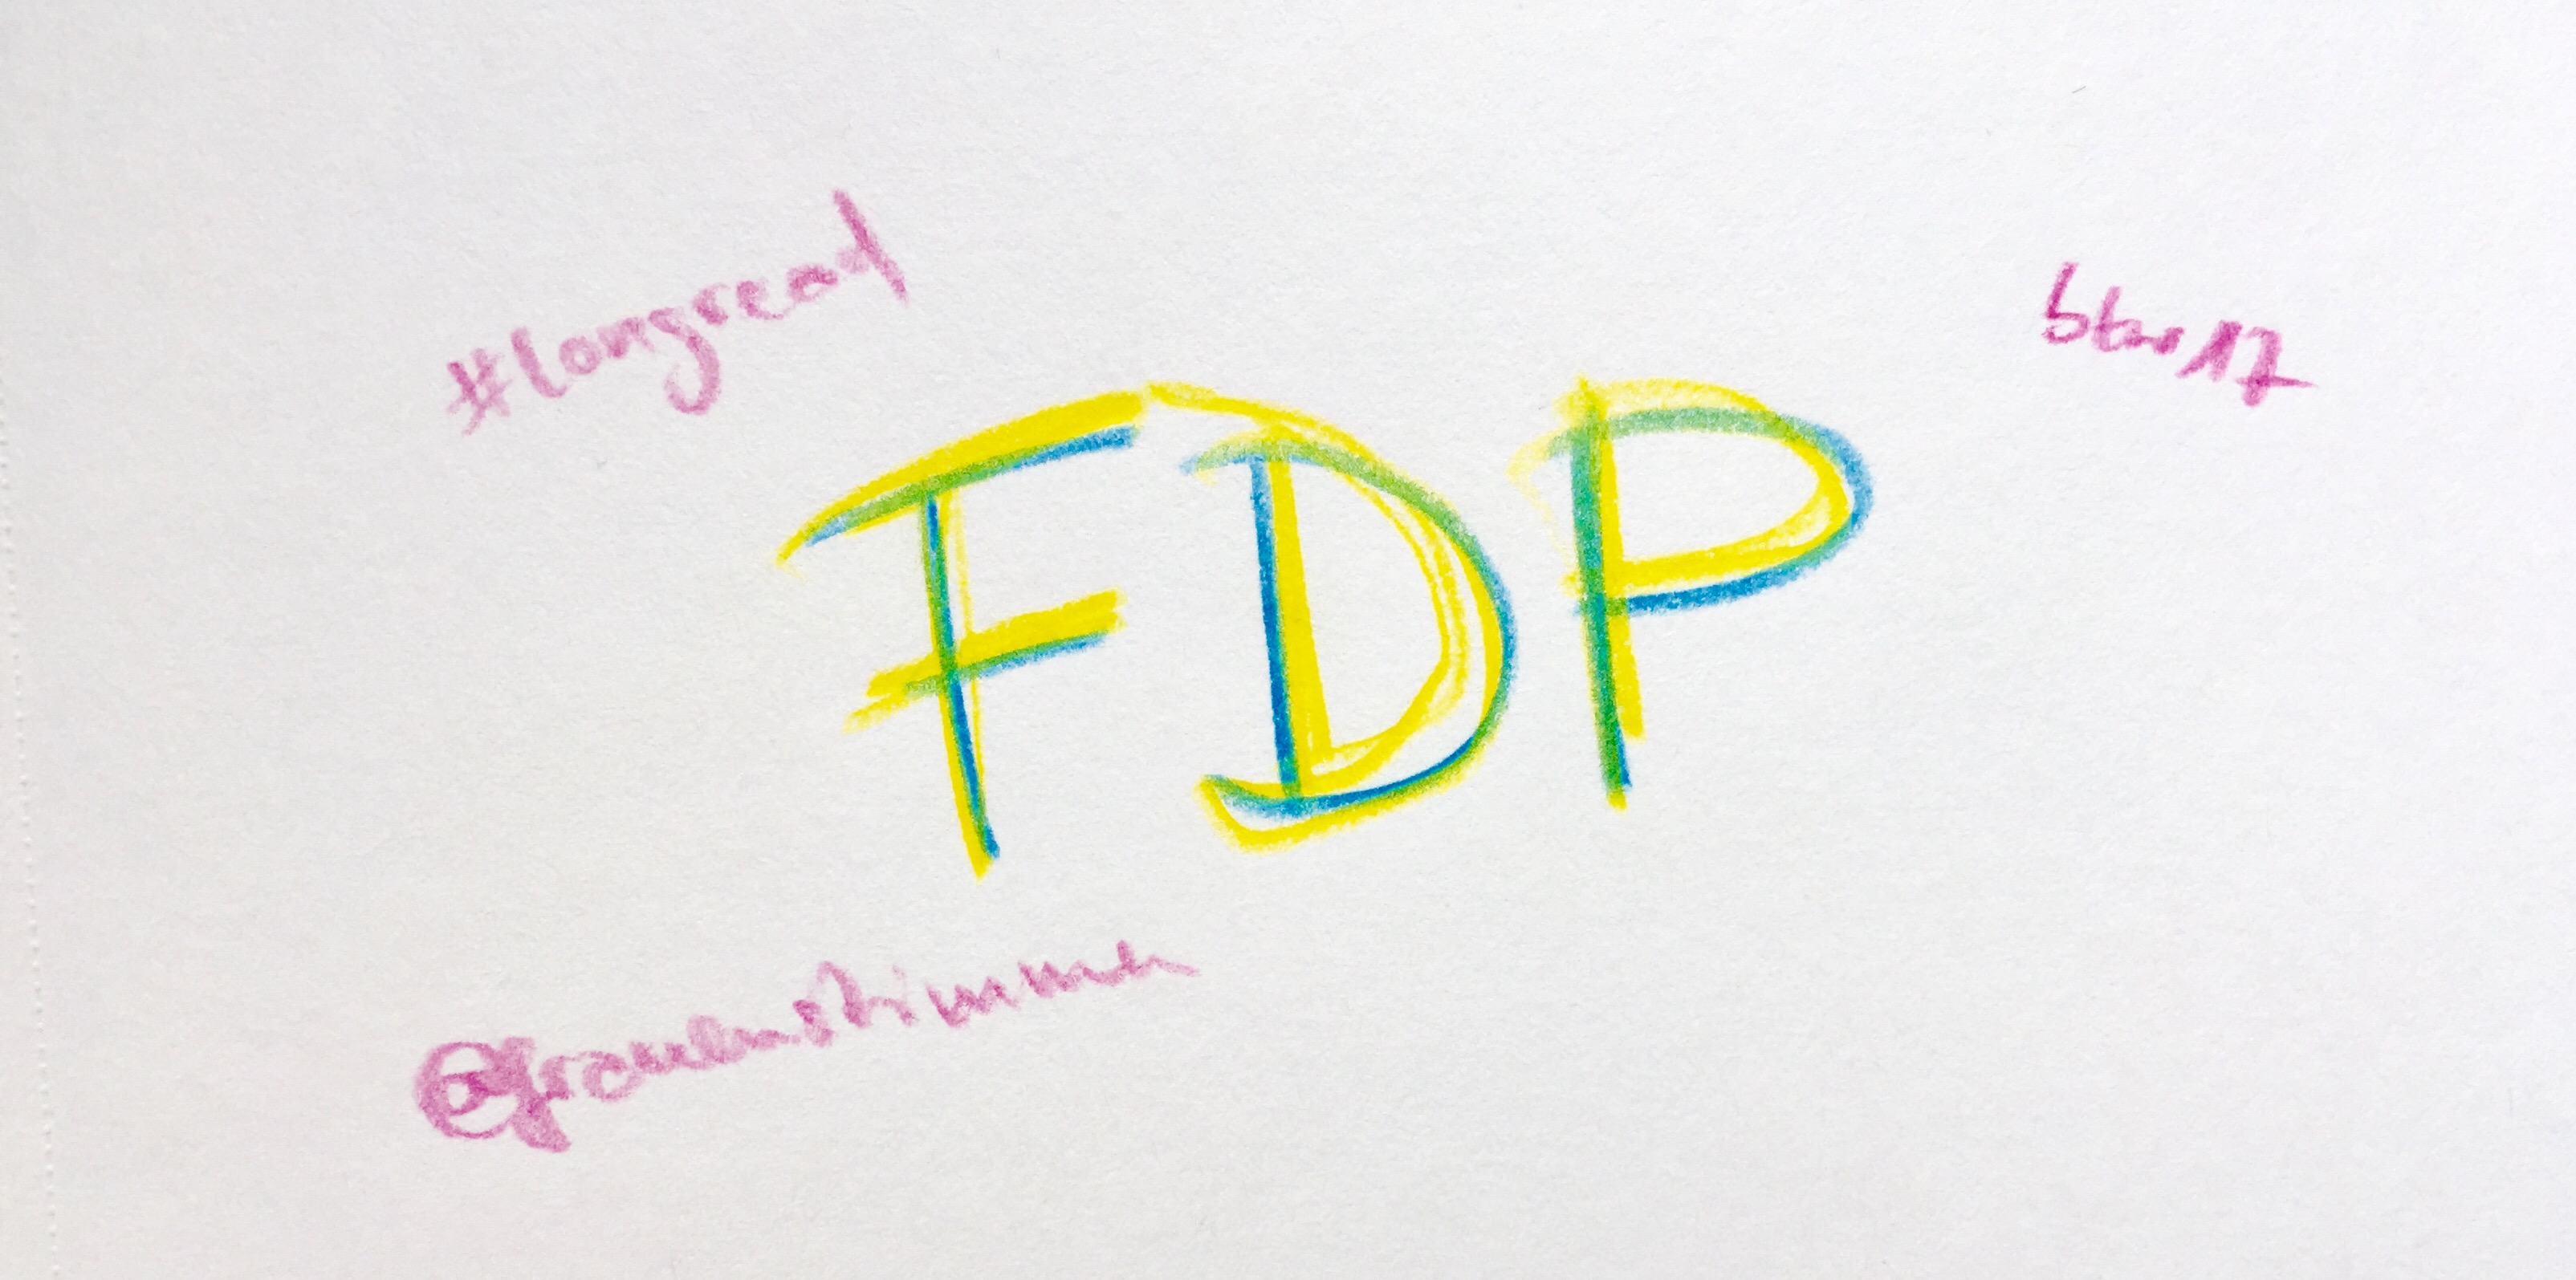 #longread
btw17
FDP
@frauenstimmen